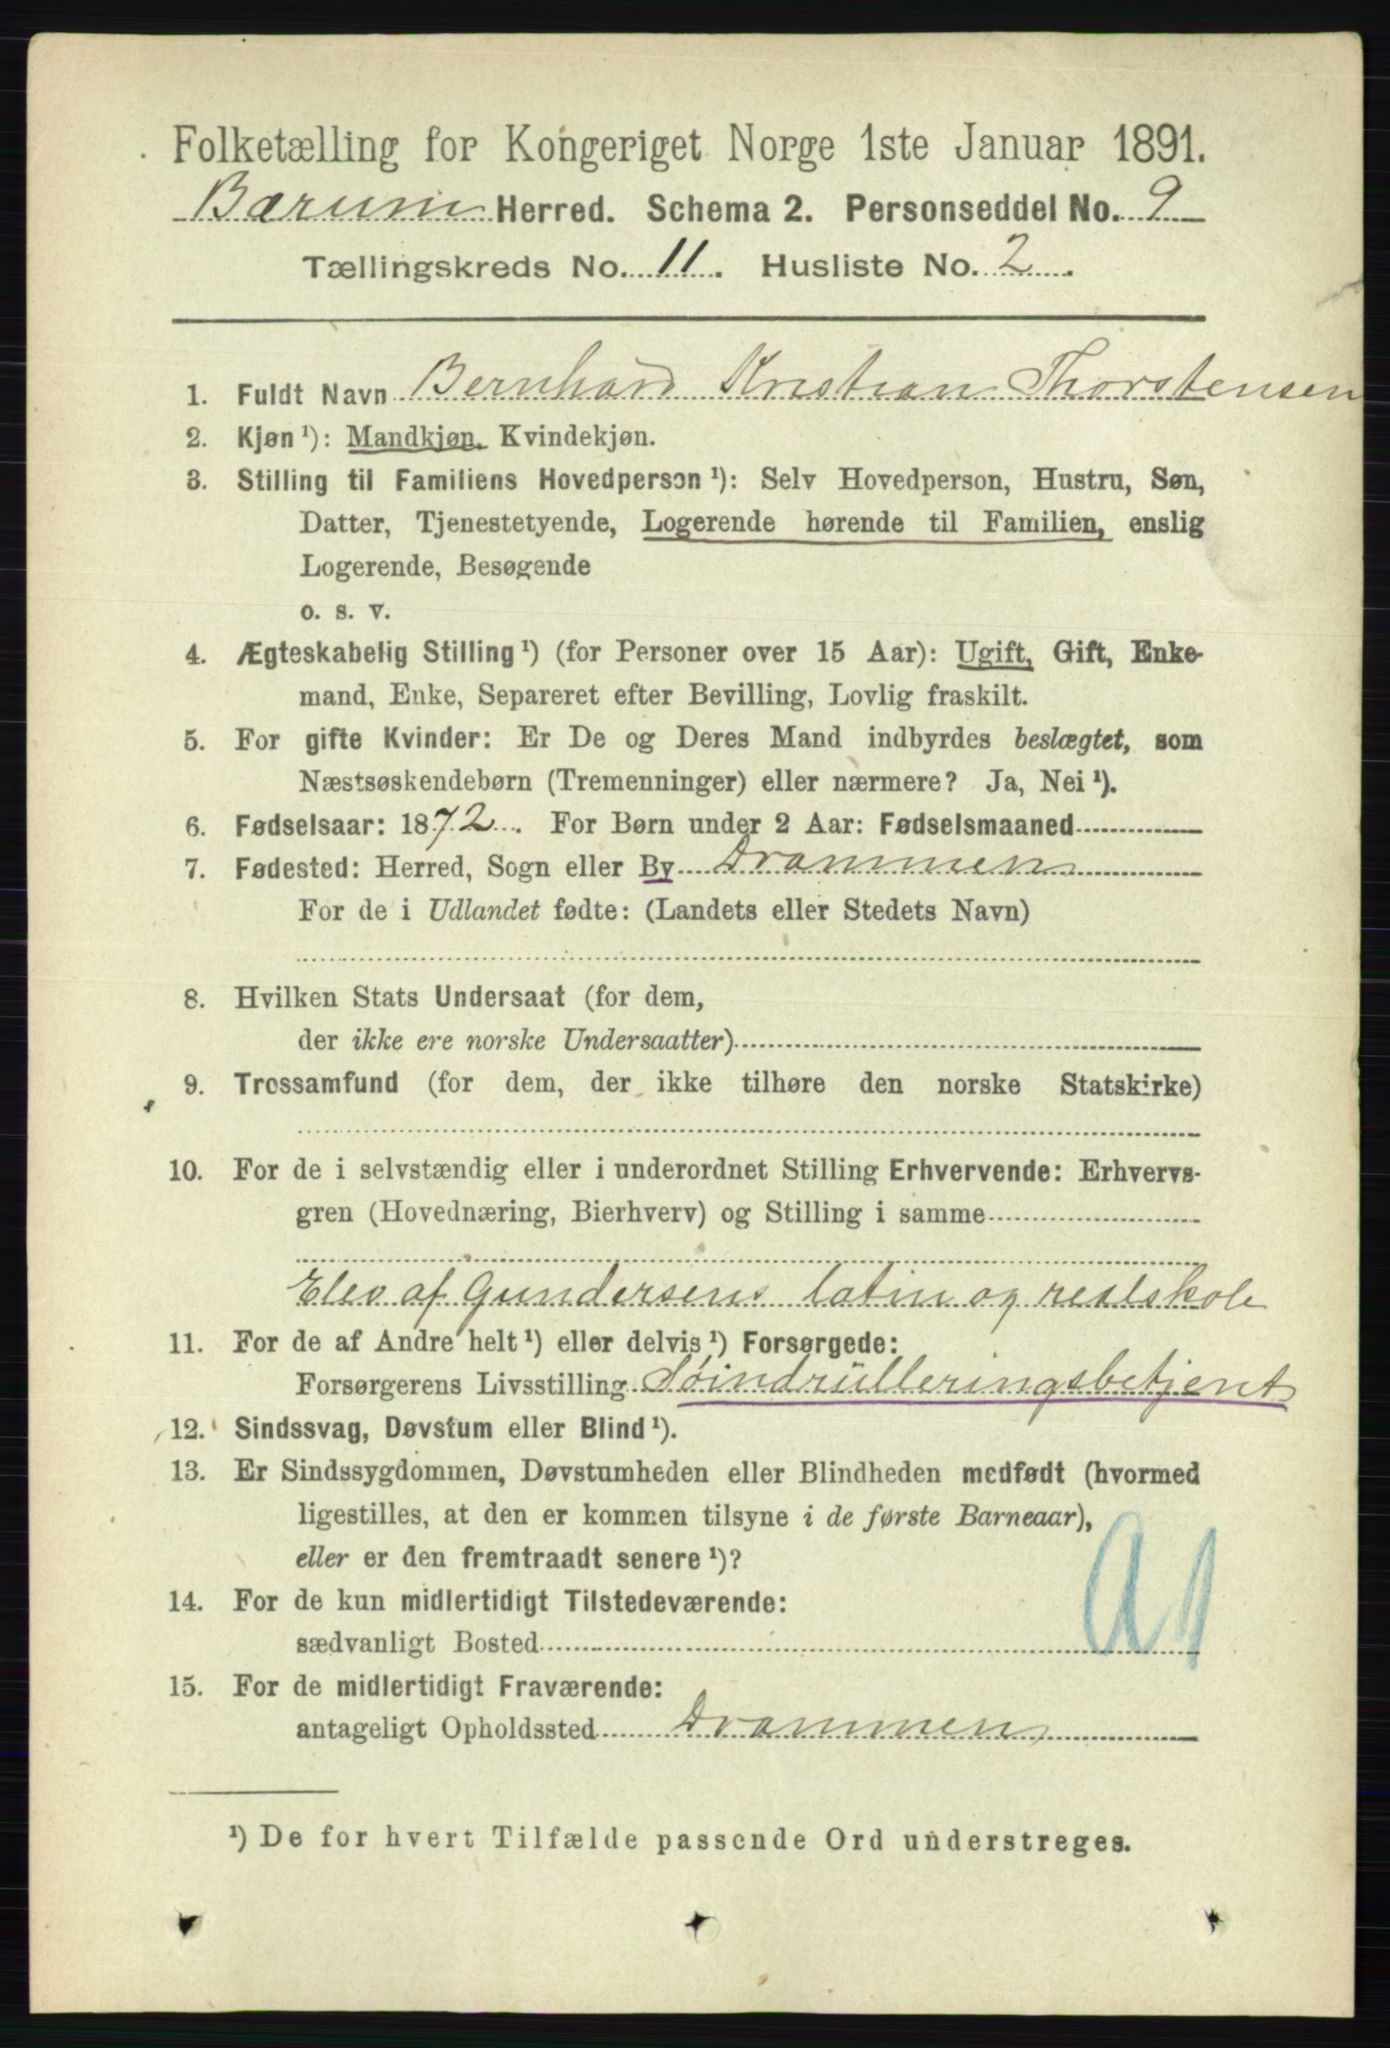 Folketælling for Kongeriget Norge 1ste Januar 1891.
Bærum Herred. Schema 2. Personseddel No. 9
Tællingskreds No. 11. Husliste No. 2.
1. Fuldt Navn Bernhard Kristian Thorstensen
2. Kjøn ¹): Mandkjøn, Kvindekjøn.
3. Stilling til Familiens Hovedperson ¹): Selv Hovedperson, Hustru, Søn,
Datter, Tjenestetyende, Logerende hørende til Familien, enslig
Logerende, Besøgende
o. s. v.
4. Ægteskabelig Stilling ¹) (for Personer over 15 Aar): Ugift, Gift, Enke-
mand, Enke, Separeret efter Bevilling, Lovlig fraskilt.
5. For gifte Kvinder: Er De og Deres Mand indbyrdes beslægtet, som
Næstsøskendebørn (Tremenninger) eller nærmere? Ja, Nei ¹).
6. Fødselsaar: 1872. For Børn under 2 Aar: Fødselsmaaned
7. Fødested: Herred, Sogn eller By Drammen
For de i Udlandet fødte: (Landets eller Stedets Navn)
8. Hvilken Stats Undersaat (for dem,
der ikke ere norske Undersaatter)
9. Trossamfund (for dem, der ikke tilhøre den norske Statskirke)
10. For de i selvstændig eller i underordnet Stilling Erhvervende: Erhvervs-
gren (Hovednæring, Bierhverv) og Stilling i samme
Elev af Gundersens latin og realskole
11. For de af Andre helt ¹) eller delvis ¹) Forsørgede:
Forsørgerens Livsstilling Søindrülleringsbetjent
12. Sindssvag, Døvstum eller Blind ¹).
13. Er Sindssygdommen, Døvstumheden eller Blindheden medfødt (hvormed
ligestilles, at den er kommen tilsyne i de første Barneaar),
eller er den fremtraadt senere ¹)?
14. For de kun midlertidigt Tilstedeværende:
sædvanligt Bosted
15. For de midlertidigt Fraværende:
antageligt Opholdssted Drammen
¹) De for hvert Tilfælde passende Ord understreges.